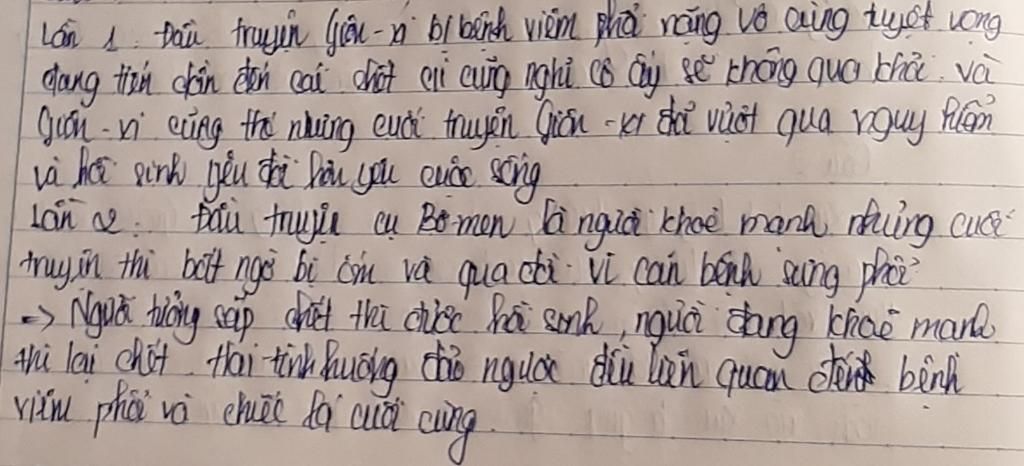 Lần 1. Đầu truyện Giôn-xi bị bệnh viêm phổi nặng vô cùng tuyệt vọng
đang tiến dần đến cái chết ai cũng nghĩ cô ấy sẽ không qua khỏi. và
Giôn-xi cũng thế nhưng cuối truyện Giôn-xi đã vượt qua nguy hiểm
và hồi sinh yêu đời hơn yêu cuộc sống
Lần 2. Đầu truyện cụ Bơ-men là người khoẻ mạnh nhưng cuối
truyện thì bất ngờ bị ốm và qua đời vì căn bệnh sưng phổi
-> Người tưởng sắp chết thì được hồi sinh, người đang khoẻ mạnh
thì lại chết. Hai tình huống đảo ngược đều liên quan đến bệnh
viêm phổi và chiếc lá cuối cùng.